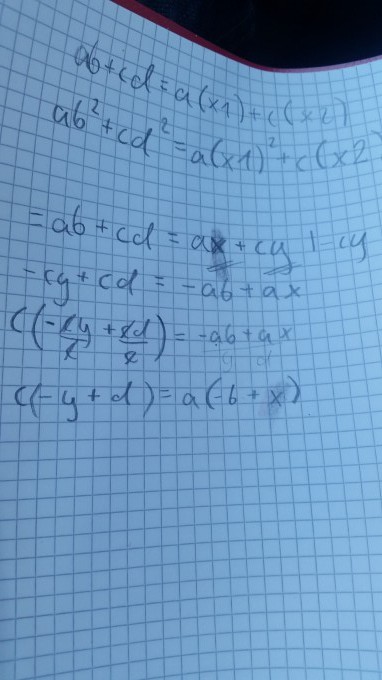 ab+cd=a(x1)+c(x2)
ab²+cd²=a(x1)²+c(x2
=ab+cd = ax+cy |-cy
-cy+cd = -ab+ax
c(-cy/c + cd/c) = -ab+ax
c(-y+d)=a(-b+x)